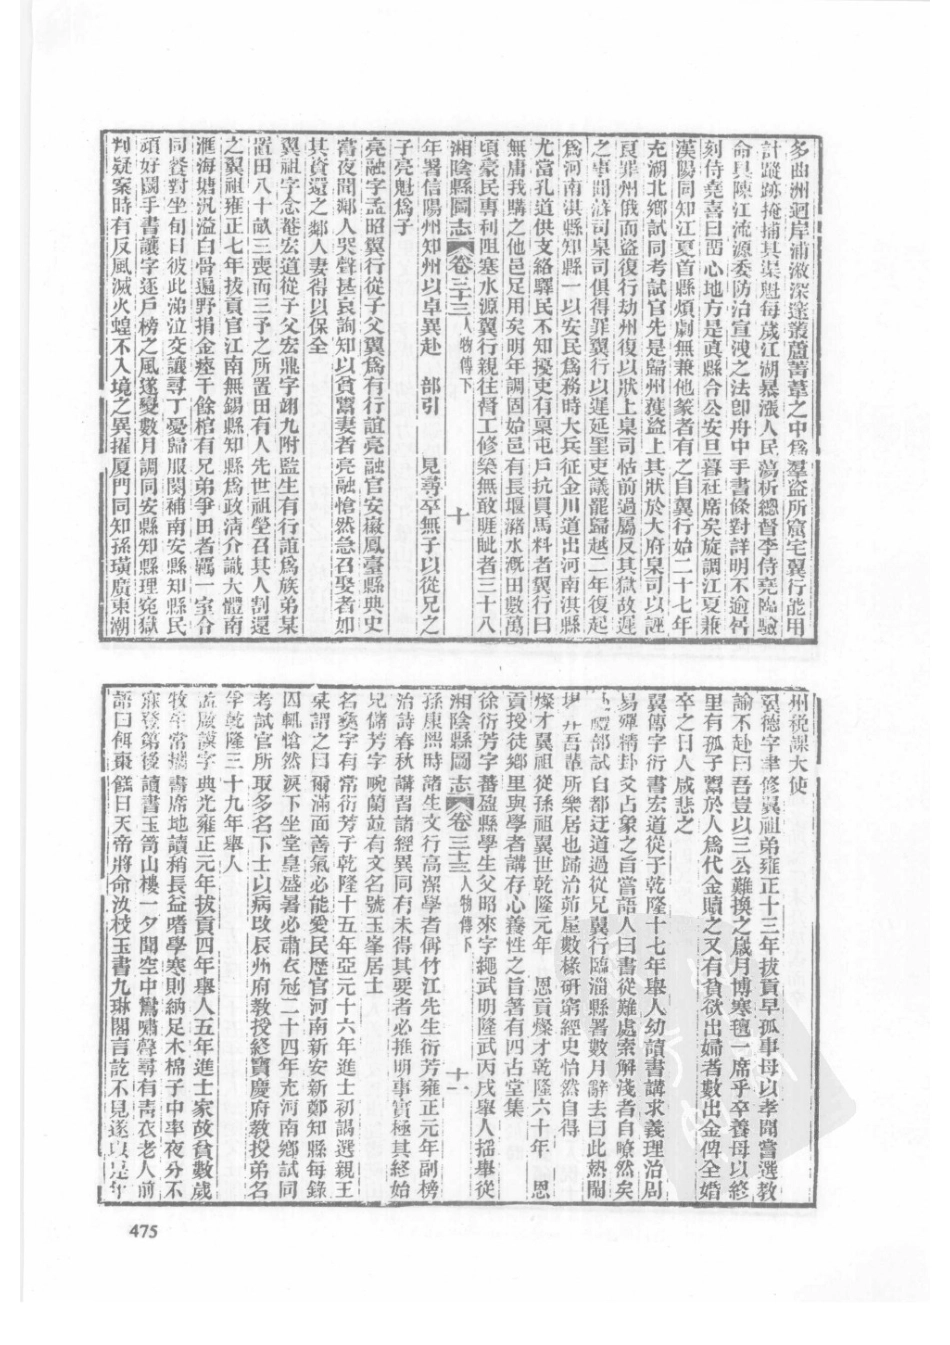 多曲洲迴岸浦漵深邃叢蘆菁葦之中爲羣盜所窟宅翼行能用
計蹤跡掩捕其渠魁每歲江湖暴漲人民蕩析總督李侍堯臨驗
命具陳江流源委防治宣洩之法卽舟中手書條對詳明不逾晷
刻侍堯喜曰留心地方是眞縣令公安旦暮衽席矣旋調江夏兼
漢陽同知江夏首縣煩劇無兼他篆者有之自翼行始二十七年
充湖北鄉試同考試官先是歸州獲盜上其狀於大府臬司以誣
良罪州俄而盜復行劫州復以狀上臬司怙前過屬反其獄故遲
之事聞諸司臬司俱得罪翼行以遲延里吏議罷歸越二年復起
爲河南淇縣知縣一以安民爲務時大兵征金川道出河南淇縣
尤當孔道供支絡驛民不知擾吏有稟屯戶抗買馬料者翼行曰
無庸我購之他邑足用矣明年調固始邑有長堰瀦水漑田數萬
頃豪民專利阻塞水源翼行親往督工修築無敢睚眦者三十八
湘陰縣圖志 卷三十三 人物傳下 十
年署信陽州知州以卓異赴 部引 見尋卒無子以從兄之
子亮魁爲子
亮融字孟昭翼行從子父翼爲有行誼亮融官安徽鳳臺縣典史
嘗夜聞鄰人哭聲甚哀詢知以貧鬻妻者亮融愴然急召娶者如
其資還之鄰人妻得以保全
翼祖字念菴宏道從子父宏鼎字翊九附監生有行誼爲族弟某
置田八十畝三喪而三予之所置田有人先世祖塋召其人割還
之翼祖雍正七年拔貢官江南無錫縣知縣爲政清介識大體南
滙海塘汎溢白骨遍野捐金瘞千餘棺有兄弟爭田者羈一室令
同餐對坐旬日彼此涕泣交讓尋丁憂歸服闋補南安縣知縣民
頑好鬭手書讓字逐戶榜之風遂變數月調同安縣知縣理冤獄
判疑案時有反風滅火蝗不入境之異擢厦門同知孫璜廣東潮
州稅課大使
翼德字聿修翼祖弟雍正十三年拔貢早孤事母以孝聞嘗選教
諭不赴曰吾豈以三公難換之歲月博寒氊一席乎卒養母以終
里有孤子鬻於人爲代金贖之又有貧欲出婦者數出金俾全婚
卒之日人咸悲之
翼傳字衍書宏道從子乾隆十七年舉人幼讀書講求義理治周
易殫精卦爻占象之旨嘗語人曰書從難處索解淺者自瞭然矣
禮部試自都迂道過從兄翼行臨淄縣署數月辭去曰此熱閙
塲非吾輩所樂居也歸治茆屋數椽研窮經史怡然自得
燦才翼祖從孫祖翼世乾隆元年 恩貢燦才乾隆六十年 恩
貢授徒鄉里與學者講存心養性之旨著有四古堂集
徐衍芳字蕃盈縣學生父昭來字繩武明隆武丙戌舉人摇舉從
湘陰縣圖志 卷三十三 人物傳下 十一
孫康熙時諸生文行高潔學者偁竹江先生衍芳雍正元年副榜
治詩春秋講習諸經異同有未得其要者必推明事實極其終始
兄儲芳字畹蘭竝有文名號玉峯居士
名奭字有常衍芳子乾隆十五年亞元十六年進士初謁選親王
某謂之曰爾滿面善氣必能愛民歷官河南新安新鄭知縣每錄
囚輒愴然淚下坐堂皇盛暑必肅衣冠二十四年充河南鄉試同
考試官所取多名下士以病改辰州府教授終寶慶府教授弟名
孚乾隆三十九年舉人
孟宬謨字典光雍正元年拔貢四年舉人五年進士家故貧數歲
牧牛常攜書席地讀稍長益嗜學寒則納足木棉子中率夜分不
寐登第後讀書玉笥山樓一夕聞空中鸞嘯聲尋有靑衣老人前
語曰餌棗餻日天帝將命汝校玉書九琳閣言訖不見遂以是年
475